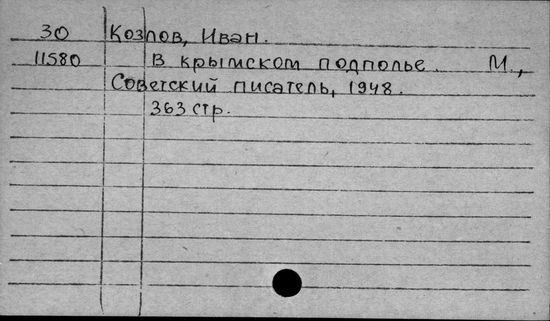 30 Козлов, Иван.
11580 В крымском подполье. М.,
Советский писатель, 1948.
363 стр.